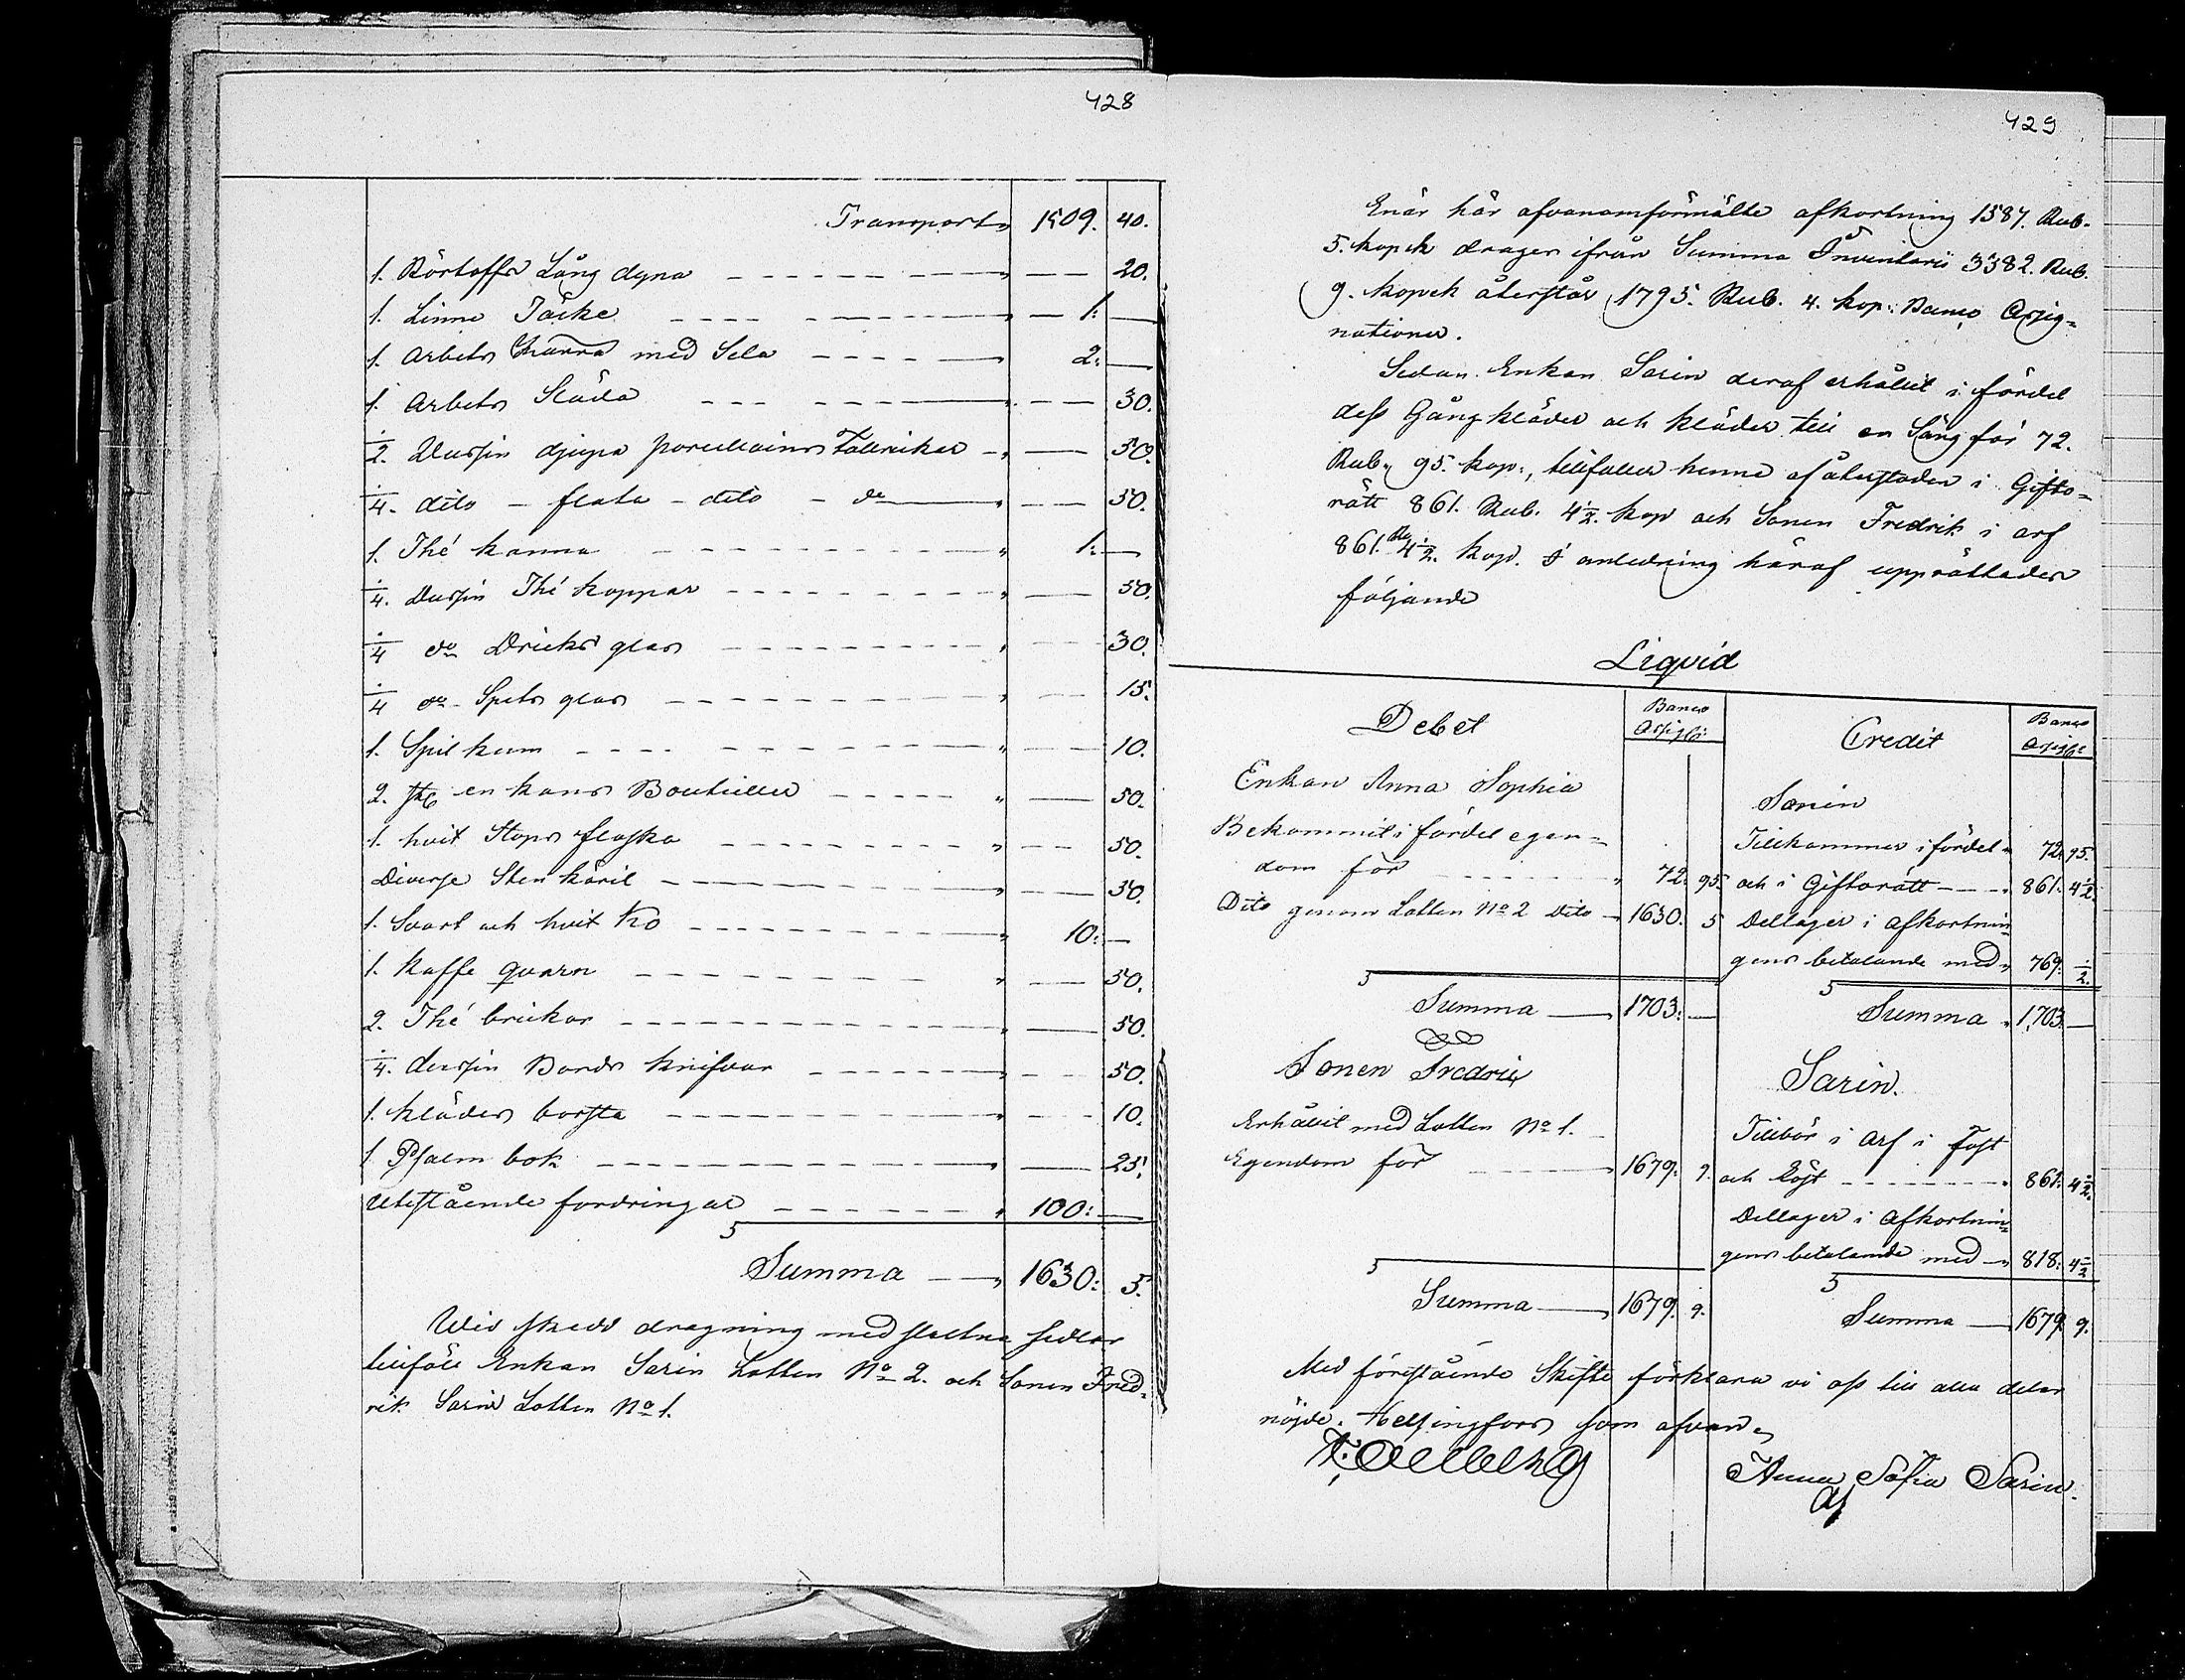 428
Transport „ 1509. 40.
1. Börstoffs Läng dyna „ — 20.
1. Linne Täcke „ — 1: —
1. Arbets Kärra med Sela „ 2: —
1. Arbets Släda „ — 30.
1/2. Dussin djupa porcellains Tallrikar „ — 50.
1/4. dito – flata – dito – do „ — 50.
1. Thé kanna „ 1: —
1/4. Dussin Thé koppar „ — 50.
1/4 do Dricks glas „ — 30.
1/4 do Spets glas „ — 15.
1. Spil kum „ — 10.
2. st en kans Bouteiller „ — 50.
1. hvit Stops flaska „ — 50.
Diverse Sten käril „ — 30.
1. Svart och hvit Ko „ 10: —
1. Kaffe qvarn „ — 50.
2. Thé brickor „ — 50.
1/4. dussin Bords knifvar „ — 50.
1. kläders borsta „ — 10.
1 Psalm bok „ — 25.
Utestående fordringar „ 100: —
Summa „ 1630: 5.
Wid skedd dragning med slutna sedlar
tillföll Enkan Sarin Lotten No 2. och Sonen Fred-
rik Sarin Lotten No 1.
429
Enär här ofvanomförmälte afkortning 1587. Rub.
5. kopek drages ifrån Summa Inventarii 3382. Rub.
9. kopek återstår 1795. Rub. 4. kop: Banco Assig=
nationer.
Sedan Enkan Sarin deraf erhållit i fördel
dess Gångkläder och kläder till en Säng för 72.
Rub. 95. kop:, tillfaller henne af återstoden i Gifto=
rätt 861. Rub. 4 1/2. kop och Sonen Fredrik i arf
861. Rb 4 1/2. kop. I anledning häraf upprättades
följande
Liqvid
Debet Banco Assigns: Credit Banco Assigns:
Enkan Anna Sophia Sarin
Bekommit i fördel egen= Tillkommer i fördel „ 72. 95.
dom för „ 72. 95. och i Giftorätt „ 861. 4 1/2.
Dito genom Lotten No 2 Dito „ 1630. 5 Deltager i afkortnin=
gens betalande med „ 769. 1/2.
Summa „ 1703: — Summa „ 1,703. —
Sonen Fredric Sarin.
Erhållit med Lotten No 1. Tillbör i Arf i Fast
Egendom för „ 1679. 9. och Löst „ 861. 4 1/2.
Deltager i Afkortnin=
gens betalande med „ 818. 4 1/2
Summa „ 1679. 9. Summa „ 1679. 9.
Med förestående Skifte förklara vi oss till alla delar
nöjde. Helsingfors som ofvan.
Anna Sofia Sarin.